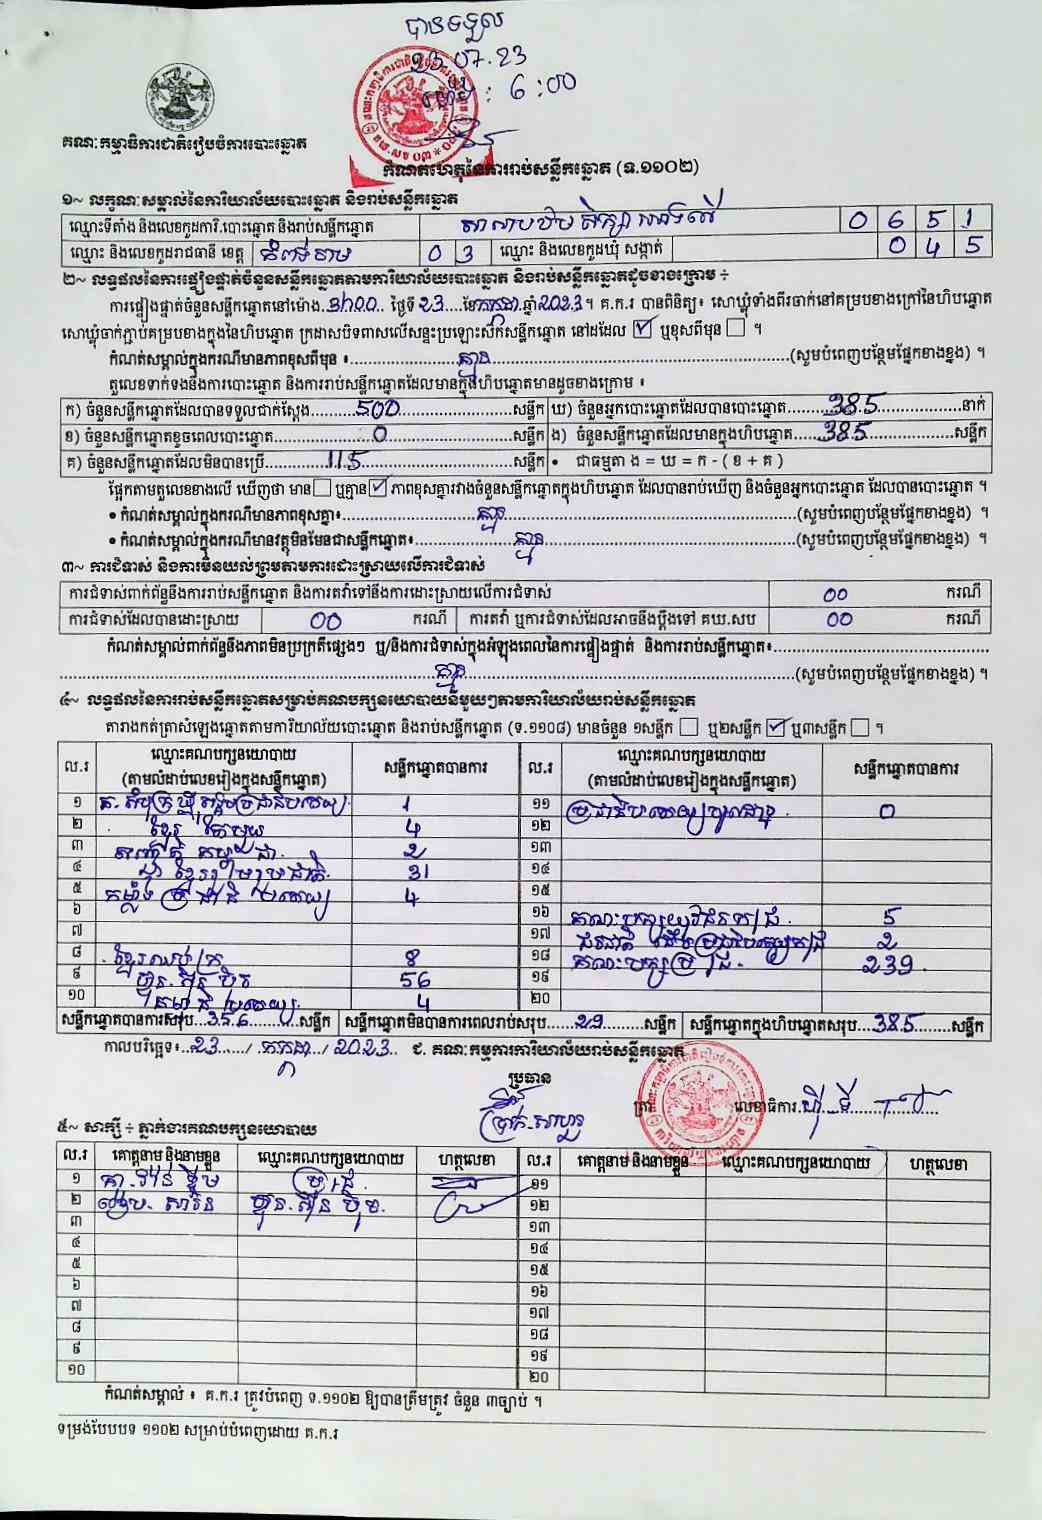 បានទទួល
23.07.23
ម៉ោង : 6:00
គណៈកម្មាធិការជាតិរៀបចំការបោះឆ្នោត
កំណត់ហេតុនៃការរាប់សន្លឹកឆ្នោត (ទ.១១០២)
១~ លក្ខណៈសម្គាល់នៃការិយាល័យបោះឆ្នោត និងរាប់សន្លឹកឆ្នោត
ឈ្មោះទីតាំង និងលេខកូដការិ.បោះឆ្នោត និងរាប់សន្លឹកឆ្នោត 0 6 5 1
ឈ្មោះ និងលេខកូដរាជធានី ខេត្ត កំពង់ចាម 0 3 ឈ្មោះ និងលេខកូដឃុំ សង្កាត់ 0 4 5
២~ លទ្ធផលនៃការផ្ទៀងផ្ទាត់ចំនួនសន្លឹកឆ្នោតតាមការិយាល័យបោះឆ្នោត និងរាប់សន្លឹកឆ្នោតដូចខាងក្រោម ÷
ការផ្ទៀងផ្ទាត់ចំនួនសន្លឹកឆ្នោតនៅម៉ោង 3h00 ថ្ងៃទី 23 ខែ កក្កដា ឆ្នាំ 2023 ។ គ.ក.រ បានពិនិត្យ៖ សោឃ្លុំទាំងពីរចាក់នៅគម្របខាងក្រៅនៃហិបឆ្នោត
សោឃ្លុំចាក់ភ្ជាប់គម្របខាងក្នុងនៃហិបឆ្នោត ក្រដាសបិទពាសលើសន្ទះប្រឡោះស៊កសន្លឹកឆ្នោត នៅដដែល ☑ ឬខុសពីមុន ☐ ។
កំណត់សម្គាល់ក្នុងករណីមានភាពខុសពីមុន ៖ គ្មាន (សូមបំពេញបន្ថែមផ្នែកខាងខ្នង) ។
តួលេខទាក់ទងនឹងការបោះឆ្នោត និងការរាប់សន្លឹកឆ្នោតដែលមានក្នុងហិបឆ្នោតមានដូចខាងក្រោម ៖
ក) ចំនួនសន្លឹកឆ្នោតដែលបានទទួលជាក់ស្តែង 500 សន្លឹក ឃ) ចំនួនអ្នកបោះឆ្នោតដែលបានបោះឆ្នោត 385 នាក់
ខ) ចំនួនសន្លឹកឆ្នោតខូចពេលបោះឆ្នោត 0 សន្លឹក ង) ចំនួនសន្លឹកឆ្នោតដែលមានក្នុងហិបឆ្នោត 385 សន្លឹក
គ) ចំនួនសន្លឹកឆ្នោតដែលមិនបានប្រើ 115 សន្លឹក • ជាធម្មតា ង = ឃ = ក - ( ខ + គ )
ផ្អែកតាមតួលេខខាងលើ ឃើញថា មាន ☐ ឬគ្មាន ☑ ភាពខុសគ្នារវាងចំនួនសន្លឹកឆ្នោតក្នុងហិបឆ្នោត ដែលបានរាប់ឃើញ និងចំនួនអ្នកបោះឆ្នោត ដែលបានបោះឆ្នោត ។
• កំណត់សម្គាល់ក្នុងករណីមានភាពខុសគ្នា៖ គ្មាន (សូមបំពេញបន្ថែមផ្នែកខាងខ្នង) ។
• កំណត់សម្គាល់ក្នុងករណីមានវត្ថុមិនមែនជាសន្លឹកឆ្នោត៖ គ្មាន (សូមបំពេញបន្ថែមផ្នែកខាងខ្នង) ។
៣~ ការជំទាស់ និងការមិនយល់ព្រមតាមការដោះស្រាយលើការជំទាស់
ការជំទាស់ពាក់ព័ន្ធនឹងការរាប់សន្លឹកឆ្នោត និងការតវ៉ាទៅនឹងការដោះស្រាយលើការជំទាស់ 00 ករណី
ការជំទាស់ដែលបានដោះស្រាយ 00 ករណី ការតវ៉ា ឬការជំទាស់ដែលអាចនឹងប្តឹងទៅ គឃ.សប 00 ករណី
កំណត់សម្គាល់ពាក់ព័ន្ធនឹងភាពមិនប្រក្រតីផ្សេងៗ ឬ/និងការជំទាស់ក្នុងអំឡុងពេលនៃការផ្ទៀងផ្ទាត់ និងការរាប់សន្លឹកឆ្នោត៖
គ្មាន (សូមបំពេញបន្ថែមផ្នែកខាងខ្នង) ។
៤~ លទ្ធផលនៃការរាប់សន្លឹកឆ្នោតសម្រាប់គណបក្សនយោបាយនីមួយៗតាមការិយាល័យរាប់សន្លឹកឆ្នោត
តារាងកត់ត្រាសំឡេងឆ្នោតតាមការិយាល័យបោះឆ្នោត និងរាប់សន្លឹកឆ្នោត (ទ.១១០៨) មានចំនួន ១សន្លឹក ☐ ឬ២សន្លឹក ☑ ឬ៣សន្លឹក ☐ ។
ល.រ ឈ្មោះគណបក្សនយោបាយ (តាមលំដាប់លេខរៀងក្នុងសន្លឹកឆ្នោត) សន្លឹកឆ្នោតបានការ ល.រ ឈ្មោះគណបក្សនយោបាយ (តាមលំដាប់លេខរៀងក្នុងសន្លឹកឆ្នោត) សន្លឹកឆ្នោតបានការ
១ 1 ១១ 0
២ ខ្មែរ រួបរួម 4 ១២
៣ កម្ពុជា 2 ១៣
៤ 31 ១៤
៥ កម្លាំង ប្រជាធិបតេយ្យ 4 ១៥
៦ ១៦ 5
៧ ១៧ 2
៨ ខ្មែរ 8 ១៨ 239
៩ ហ្វ៊ុន.ស៊ិន ប៉ិច 56 ១៩
១០ 4 ២០
សន្លឹកឆ្នោតបានការសរុប 356 សន្លឹក សន្លឹកឆ្នោតមិនបានការពេលរាប់សរុប 29 សន្លឹក សន្លឹកឆ្នោតក្នុងហិបឆ្នោតសរុប 385 សន្លឹក
កាលបរិច្ឆេទ៖ 23 / កក្កដា / 2023 ជ. គណៈកម្មការការិយាល័យរាប់សន្លឹកឆ្នោត
ប្រធាន
ត្រា លេខាធិការ
៥~ សាក្សី ÷ ភ្នាក់ងារគណបក្សនយោបាយ
ល.រ គោត្តនាម និងនាមខ្លួន ឈ្មោះគណបក្សនយោបាយ ហត្ថលេខា ល.រ គោត្តនាម និងនាមខ្លួន ឈ្មោះគណបក្សនយោបាយ ហត្ថលេខា
១ ១១
២ ហ្វ៊ុន.ស៊ិន ប៉ិច ១២
៣ ១៣
៤ ១៤
៥ ១៥
៦ ១៦
៧ ១៧
៨ ១៨
៩ ១៩
១០ ២០
កំណត់សម្គាល់ ៖ គ.ក.រ ត្រូវបំពេញ ទ.១១០២ ឱ្យបានត្រឹមត្រូវ ចំនួន ៣ច្បាប់ ។
ទម្រង់បែបបទ ១១០២ សម្រាប់បំពេញដោយ គ.ក.រ